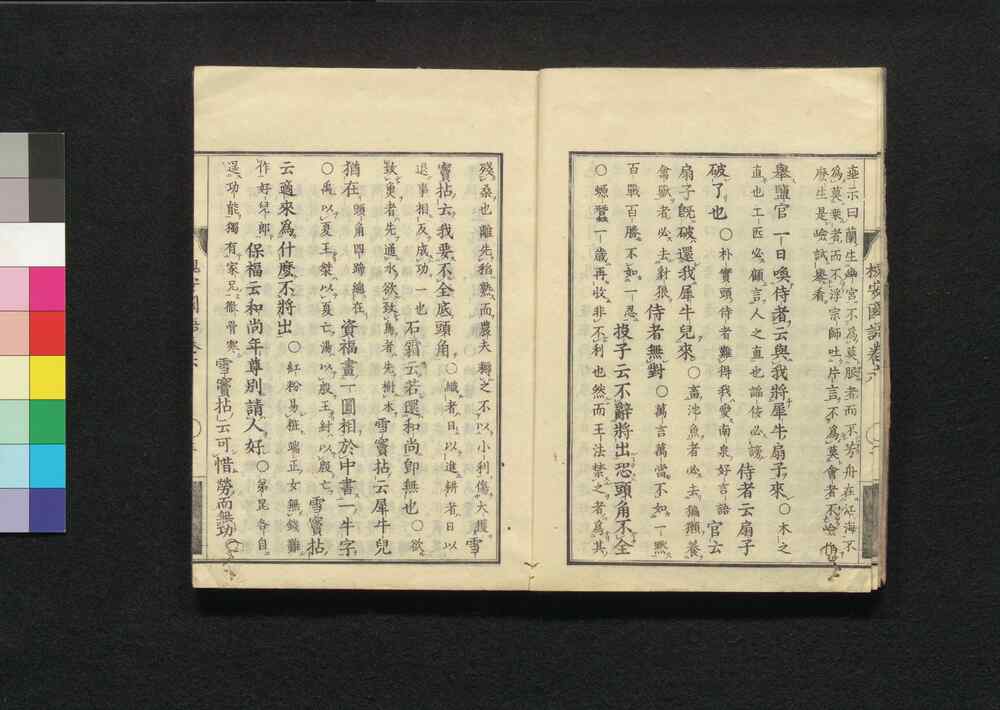 垂示曰蘭生幽宮不爲莫服者而不芳舟在江海不
爲莫乘者而不浮宗師吐片言不爲莫會者不嶮
麼生是嶮試擧看
擧鹽官一日喚侍者云與我將犀牛扇子來〇木之
直也工匠必顧言人之直也謡佞必謗 侍者云扇子
破了也〇朴實頭侍者難得我愛南泉好言語 官云
扇子旣破還我犀牛兒來〇畜池魚者必去猵獺養
禽獸者必去豺狼 侍者無對〇萬言萬當不如一默
百戰百勝不如一忍 投子云不辭將出恐頭角不全
〇螈蠶一歲再收非不利也然而王法禁之者爲其
桉安國語卷六
殘桑也離先稻熟而農夫耨之不以小利傷大穫 雪
竇拈云我要不全底頭角〇織者日以進耕者日以
退事相反成功一也 石霜云若還和尚卽無也〇欲
致魚者先通水欲致鳥者先樹木 雪竇拈云犀牛兒
猶在 頭角四蹄總在 資福畫一圓相於中書一牛字
〇禹以夏王桀以夏亡湯以殷王紂以殷亡 雪竇拈
云適來爲什麼不將出〇紅粉易粧端正女無錢難
作好兒郎 保福云和尚年尊別請人好〇弟昆各自
逞功能獨有家兄徹骨寒 雪竇拈云可惜勞而無功